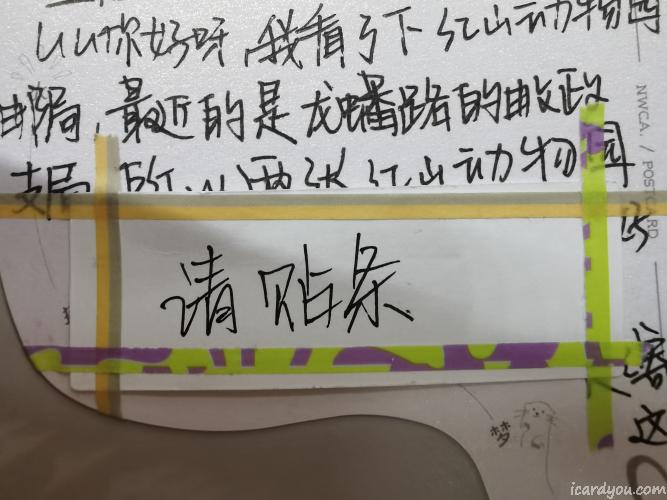 UU你好呀,我看了下红山动物园
邮局,最近的是龙蟠路的邮政
支局所,以两张红山动物园
请贴条
这
梦
NWCA. / POSTCARD
icardyou.com